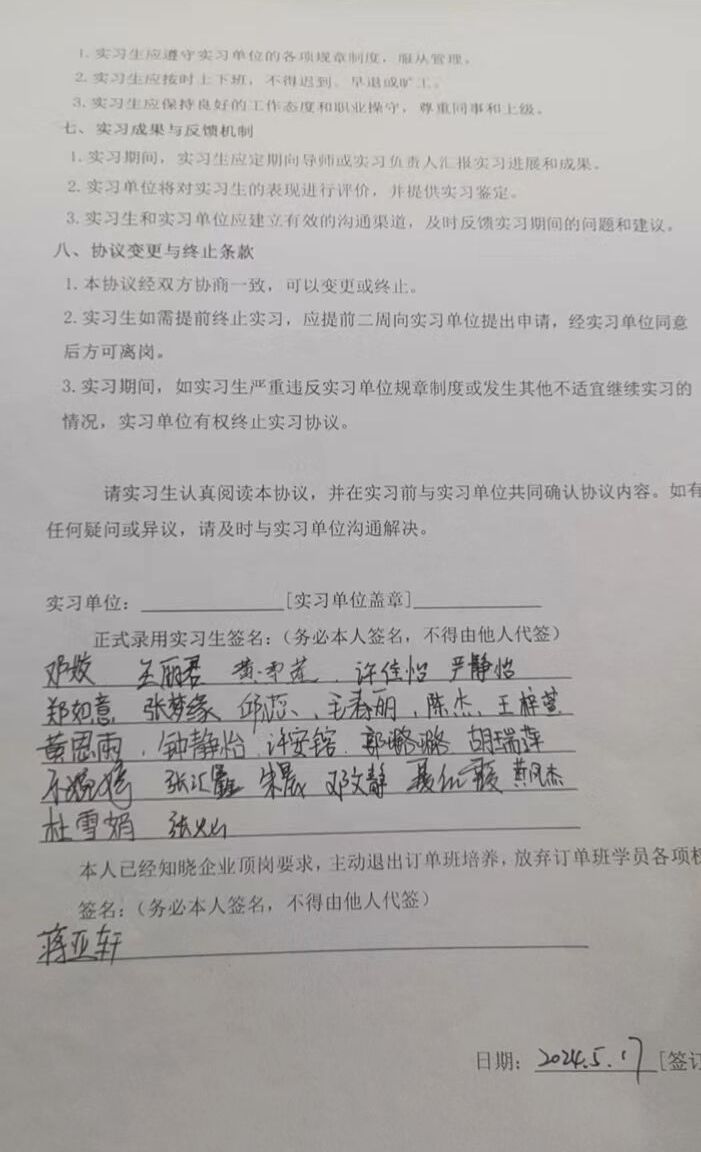 1. 实习生应遵守实习单位的各项规章制度，服从管理。
2. 实习生应按时上下班，不得迟到、早退或旷工。
3. 实习生应保持良好的工作态度和职业操守，尊重同事和上级。
七、实习成果与反馈机制
1. 实习期间，实习生应定期向导师或实习负责人汇报实习进展和成果。
2. 实习单位将对实习生的表现进行评价，并提供实习鉴定。
3. 实习生和实习单位应建立有效的沟通渠道，及时反馈实习期间的问题和建议。
八、协议变更与终止条款
1. 本协议经双方协商一致，可以变更或终止。
2. 实习生如需提前终止实习，应提前二周向实习单位提出申请，经实习单位同意
后方可离岗。
3. 实习期间，如实习生严重违反实习单位规章制度或发生其他不适宜继续实习的
情况，实习单位有权终止实习协议。
请实习生认真阅读本协议，并在实习前与实习单位共同确认协议内容。如有
任何疑问或异议，请及时与实习单位沟通解决。
实习单位：____________[实习单位盖章]____________
正式录用实习生签名：（务必本人签名，不得由他人代签）
王丽君 许佳怡 严静怡
郑如意 张梦缘 邱蕊、毛春丽，陈杰、王梓萱
黄思雨，钟静怡 许安镕 郭璐璐 胡瑞萍
张汇鑫 朱晨 邓文静 黄风杰
杜雪娟
本人已经知晓企业顶岗要求，主动退出订单班培养，放弃订单班学员各项权
签名：（务必本人签名，不得由他人代签）
蒋亚轩
日期：2024.5.17 [签订